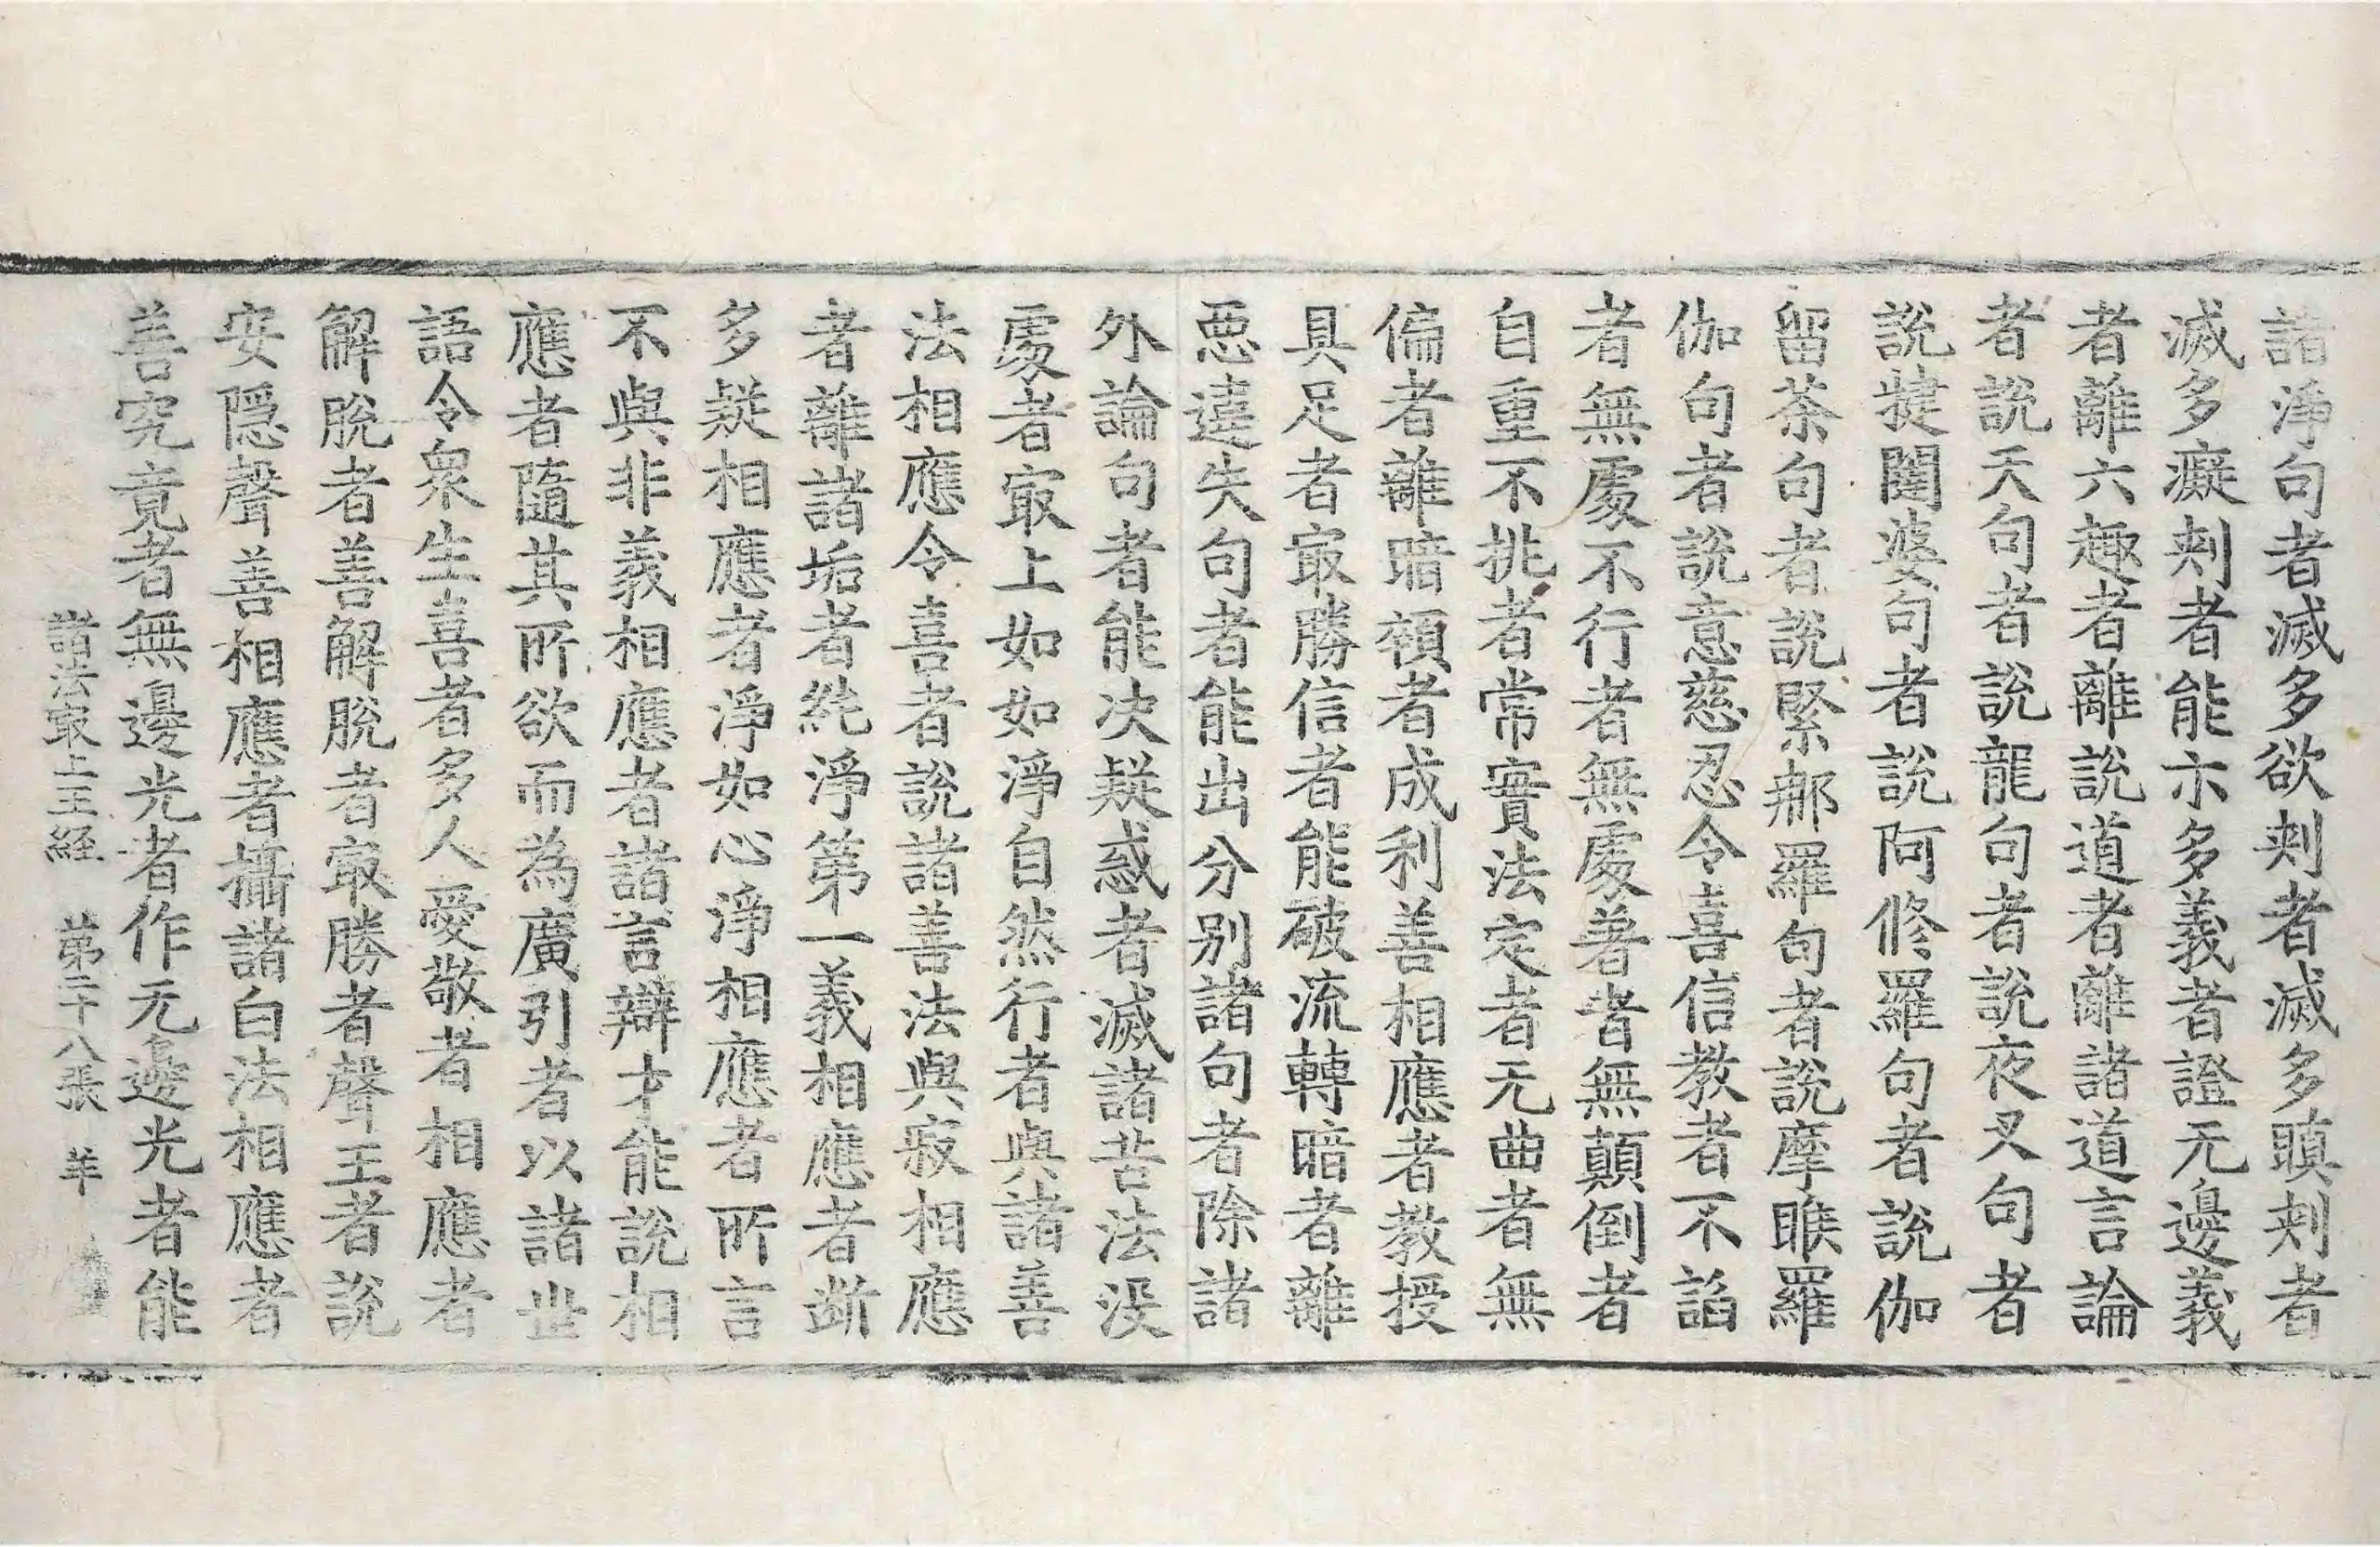 諸淨句者滅多欲刺者滅多瞋刺者
滅多癡刺者能示多義者證无邊義
者離六趣者離說道者離諸道言論
者說天句者說龍句者說夜叉句者
說揵闥婆句者說阿修羅句者說伽
留茶句者說緊那羅句者說摩睺羅
伽句者說意慈忍令喜信教者不諂
者無處不行者無處著者無顛倒者
自重不挑者常實法定者无曲者無
偏者離暗頓者成利善相應者教授
具足者㝡勝信者能破流轉暗者離
惡違失句者能出分別諸句者除諸
外論句者能决疑惑者滅諸苦法没
處者㝡上如如淨自然行者與諸善
法相應令喜者說諸善法與寂相應
者離諸垢者純淨第一義相應者斷
多疑相應者淨如心淨相應者所言
不與非義相應者諸言辯才能說相
應者隨其所欲而為廣引者以諸世
語令衆生喜者多人愛敬者相應者
解脫者善解脫者㝡勝者聲王者說
安隱聲善相應者攝諸白法相應者
善究竟者無邊光者作无邊光者能
諸法㝡上王經 第二十八張 羊